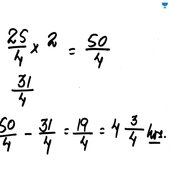 25/4 x 2 = 50/4
31/4
50/4 - 31/4 = 19/4 = 4 3/4 hrs.